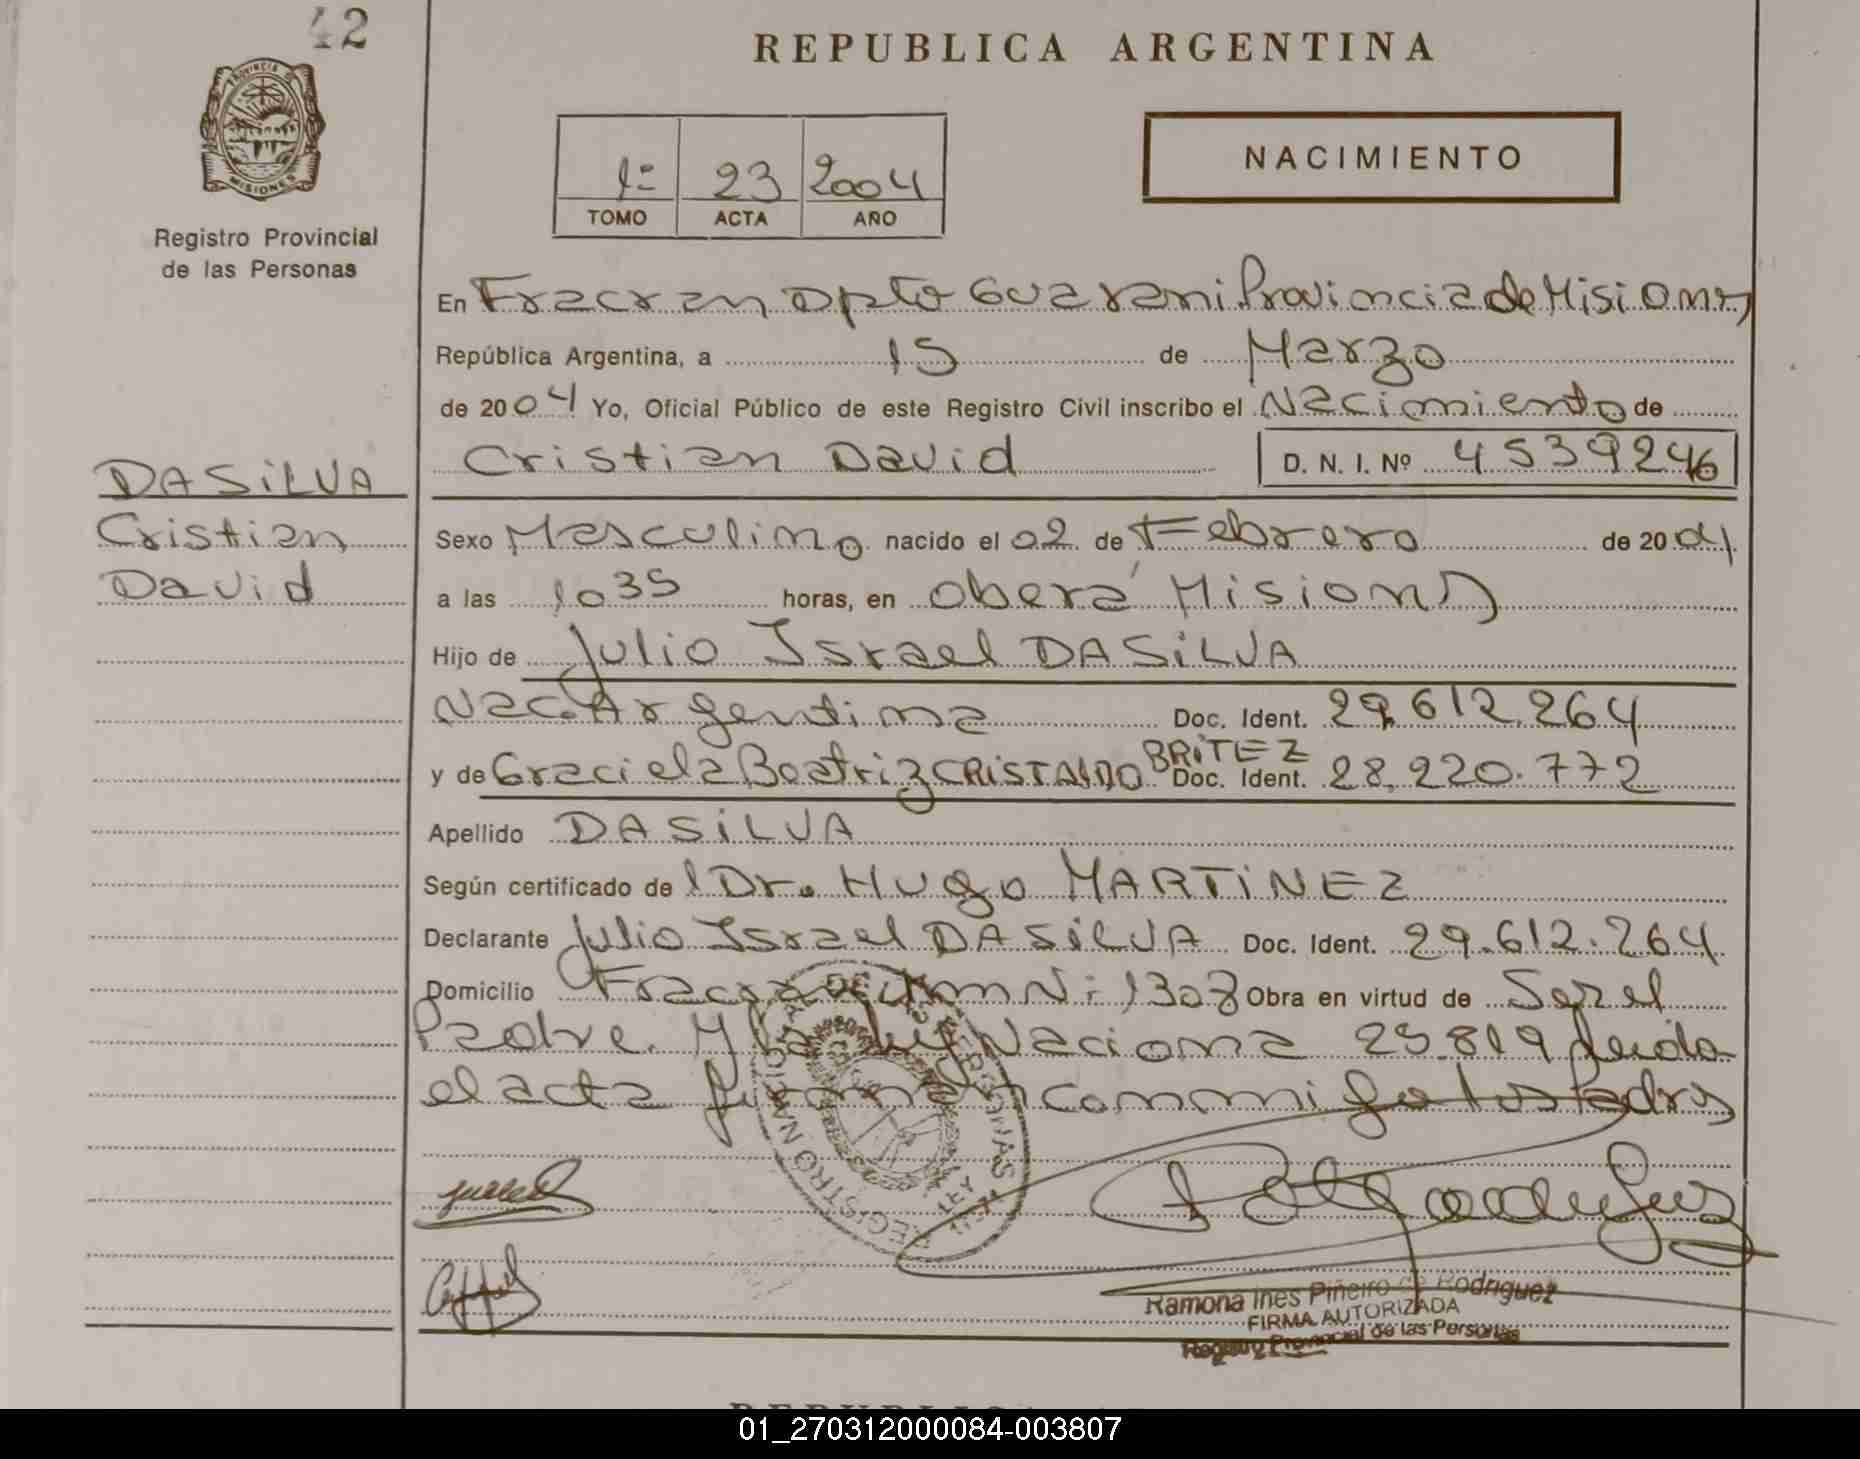 42
REPUBLICA ARGENTINA
PROVINCIA DE
MISIONES
Registro Provincial
de las Personas
1º 23 2004
TOMO ACTA AÑO
NACIMIENTO
En Fracran Dpto Guarani Provincia de Misiones
República Argentina, a 15 de Marzo
de 2004 Yo, Oficial Público de este Registro Civil inscribo el Nacimiento de
Cristian David D. N. I. Nº 45392246
DASiLVA
Cristian
David
Sexo Masculino nacido el 02 de Febrero de 2004
a las 10 35 horas, en Oberá Misiones
Hijo de Julio Israel DASiLVA
Nac. Argentina Doc. Ident. 29.612.264
y de Graciela Beatriz CRiSTALDO BRiTEZ Doc. Ident. 28.220.772
Apellido DASiLVA
Según certificado del Dr. Hugo MARTiNEZ
Declarante Julio Israel DASiLVA Doc. Ident. 29.612.264
Domicilio Fracran Obra en virtud de Ser el
Padre. Y la Ley Naciona 25.819 Leida
el acta firman conmigo los Padres
REGISTRO NACIONAL DE LAS PERSONAS
LEY
Ramona Ines Piñeiro de Rodriguez
FIRMA AUTORIZADA
Registro Provincial de las Personas
01_270312000084-003807